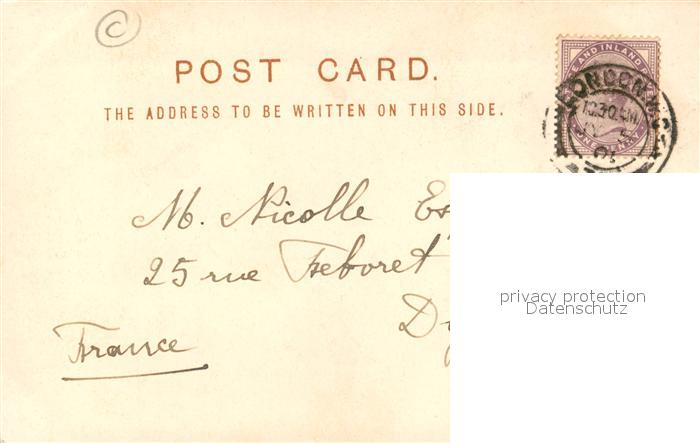 ©
POST CARD.
THE ADDRESS TO BE WRITTEN ON THIS SIDE.
E AND INLAND
LONDON
10.30 AM
01
ONE PENNY
M. Nicolle Es
25 rue Feboret
Di
France
privacy protection
Datenschutz